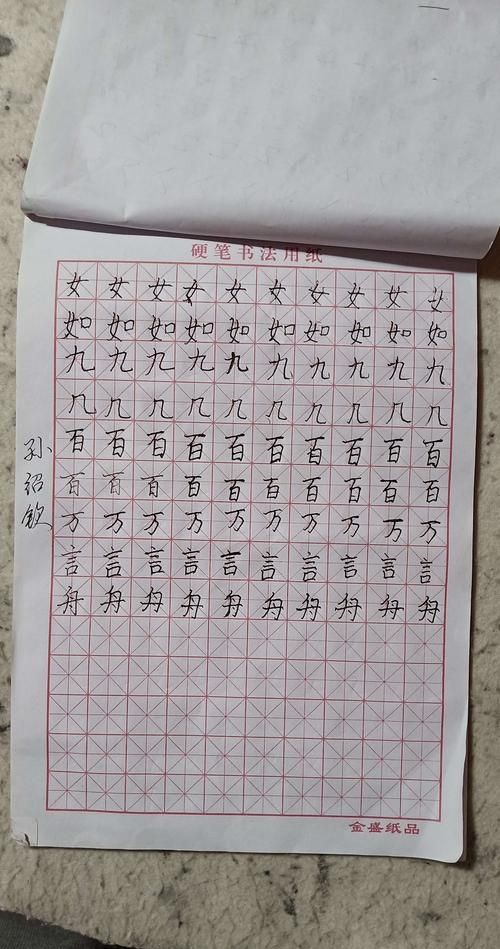 硬笔书法用纸
女女女女女女女女女女
如如如如如如如如如如
九九九九九九九九九九
几几几几几几几几几几
百百百百百百百百百百
百百百百百百百百百百
万万万万万万万万万万
言言言言言言言言言言
舟舟舟舟舟舟舟舟舟舟
孙绍钦
金盛纸品